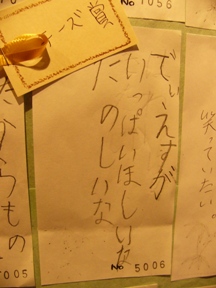 No 1056
ーズ賞
笑っていたい。
でぃえすが
いっぱいほしいな
たのしいな
No 5006
7005